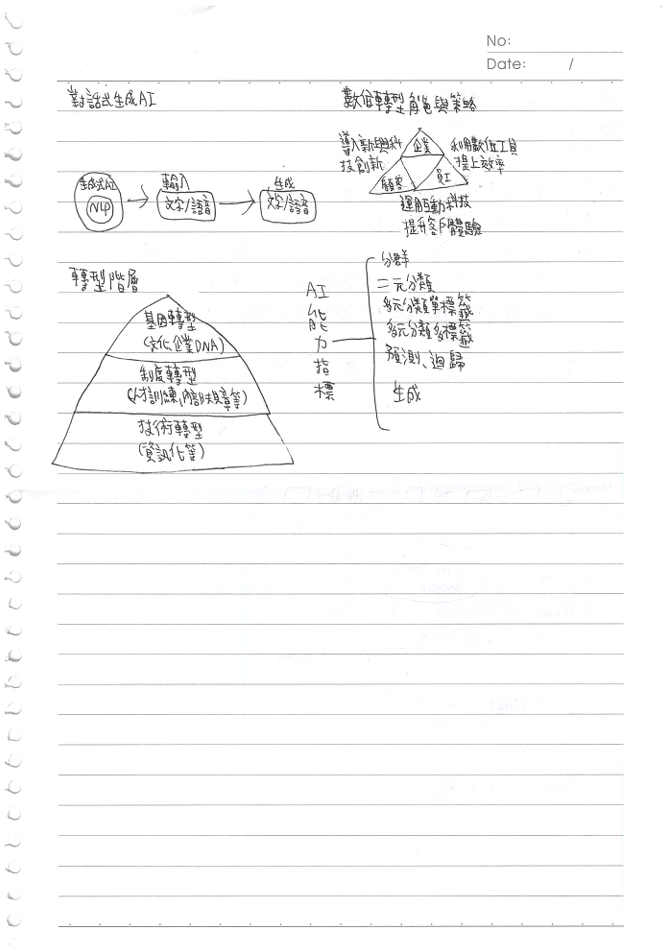 No:
Date: /
對話式生成AI
生成式AI
NLP
輸入
文字/語音
生成
文字/語音
數位轉型角色與策略
導入新興科
技創新
企業
利用數位工具
提上效率
顧客
員工
運用互動科技
提升客戶體驗
轉型階層
基因轉型
(文化、企業DNA)
制度轉型
(人才訓練、內部規章等)
技術轉型
(資訊化等)
AI
能
力
指
標
分群
二元分類
多元分類單標籤
多元分類多標籤
預測、迴歸
生成